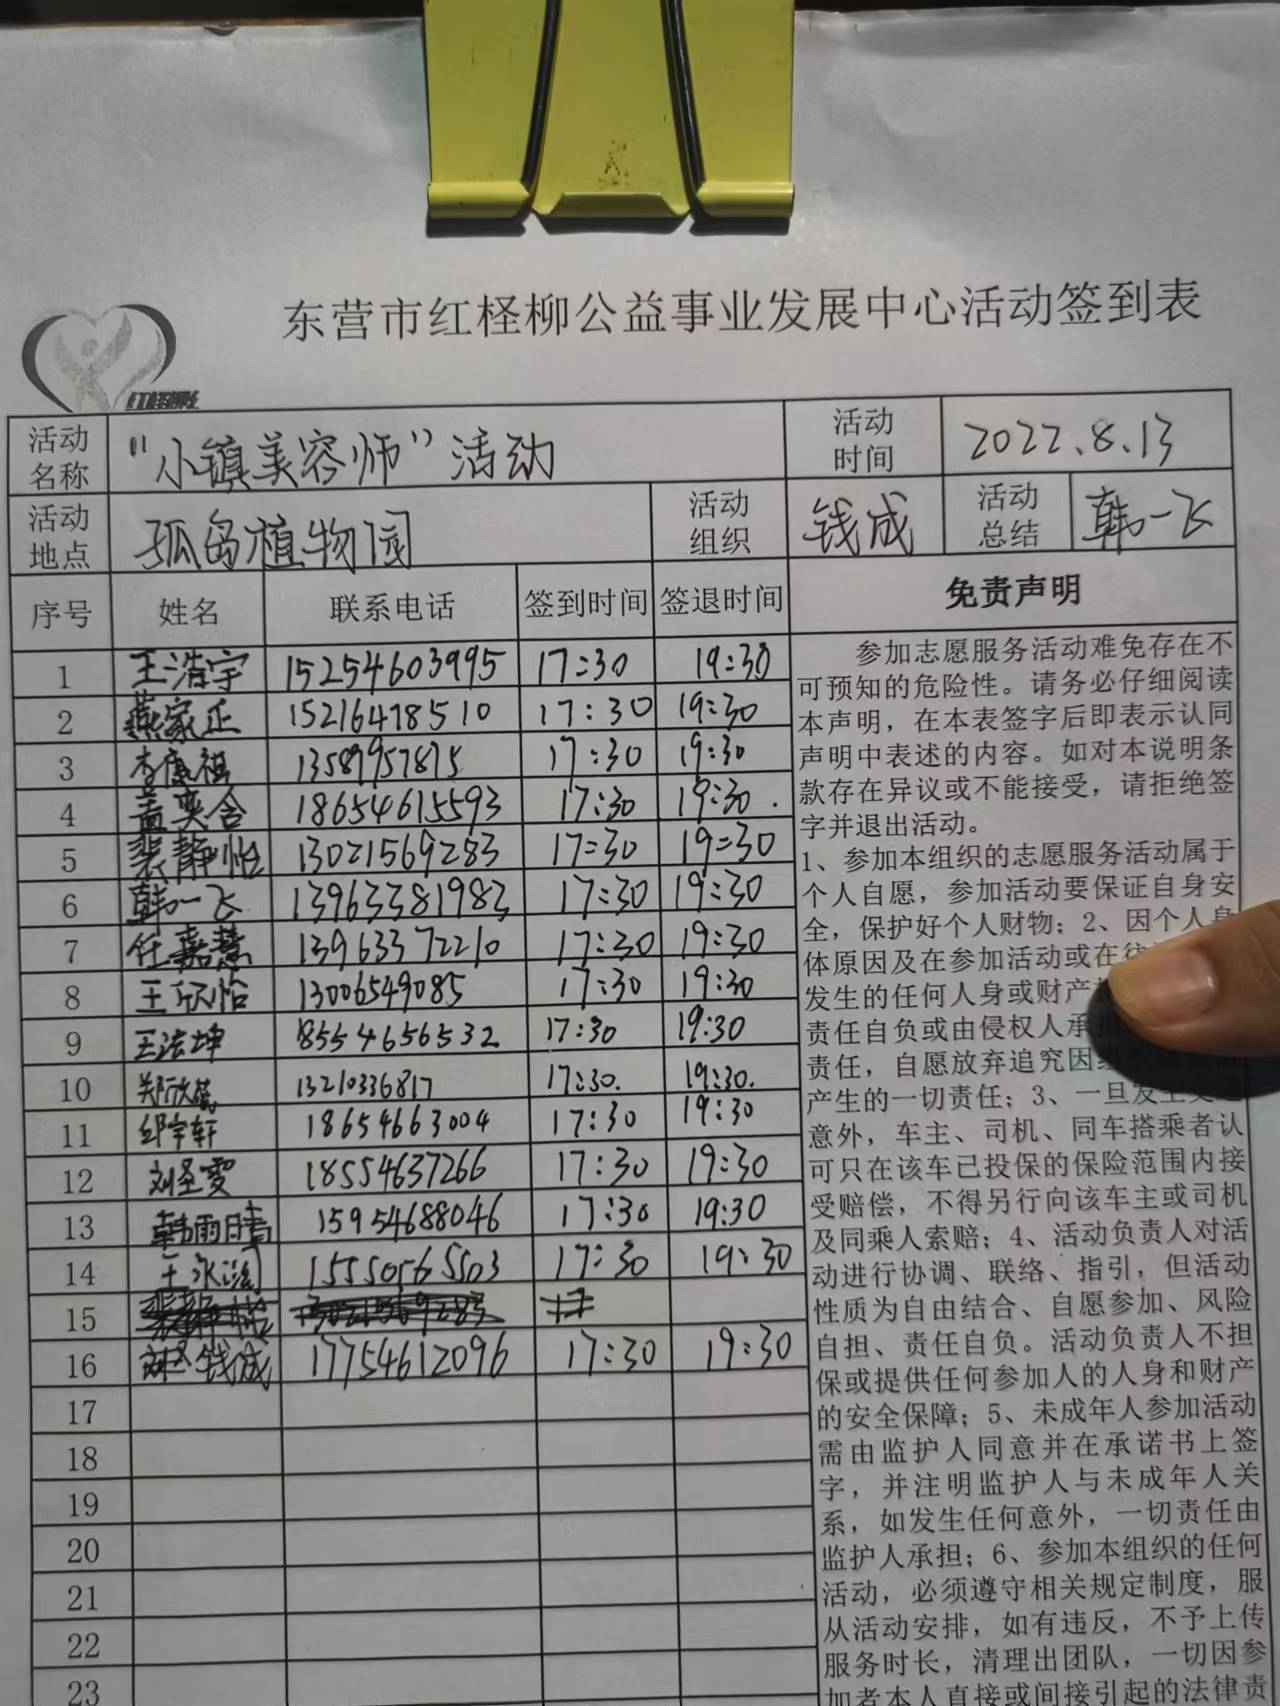 东营市红柽柳公益事业发展中心活动签到表
红柽柳
活动名称 “小镇美容师”活动 活动时间 2022.8.13
活动地点 孤岛植物园 活动组织 钱成 活动总结 韩一飞
序号 姓名 联系电话 签到时间 签退时间 免责声明
1 王浩宇 15254603995 17:30 19:30
2 燕家正 15216478510 17:30 19:30
3 李康祺 13589957875 17:30 19:30
4 孟奕含 18654615593 17:30 19:30.
5 裴静怡 13021569283 17:30 19:30
6 韩一飞 13963381983 17:30 19:30
7 任嘉慧 13963372210 17:30 19:30
8 王欣怡 13006549085 17:30 19:30
9 王浩坤 18554656532 17:30 19:30
10 郑欣 13210336817 17:30. 19:30.
11 邱宇轩 18654663004 17:30 19:30
12 刘圣雯 18554637266 17:30 19:30
13 韩雨晴 15954688046 17:30 19:30
14 王泳涵 15550565503 17:30 19:30
15 裴静怡 13021569283
16 钱成 17754612096 17:30 19:30
17
18
19
20
21
22
23
参加志愿服务活动难免存在不
可预知的危险性。请务必仔细阅读
本声明，在本表签字后即表示认同
声明中表述的内容。如对本说明条
款存在异议或不能接受，请拒绝签
字并退出活动。
1、参加本组织的志愿服务活动属于
个人自愿，参加活动要保证自身安
全，保护好个人财物；2、因个人身
体原因及在参加活动或在往
发生的任何人身或财产
责任自负或由侵权人承担
责任，自愿放弃追究因
产生的一切责任；3、一旦发生交通
意外，车主、司机、同车搭乘者认
可只在该车已投保的保险范围内接
受赔偿，不得另行向该车主或司机
及同乘人索赔；4、活动负责人对活
动进行协调、联络、指引，但活动
性质为自由结合、自愿参加、风险
自担、责任自负。活动负责人不担
保或提供任何参加人的人身和财产
的安全保障；5、未成年人参加活动
需由监护人同意并在承诺书上签
字，并注明监护人与未成年人关
系，如发生任何意外，一切责任由
监护人承担；6、参加本组织的任何
活动，必须遵守相关规定制度，服
从活动安排，如有违反，不予上传
服务时长，清理出团队，一切因参
加者本人直接或间接引起的法律责